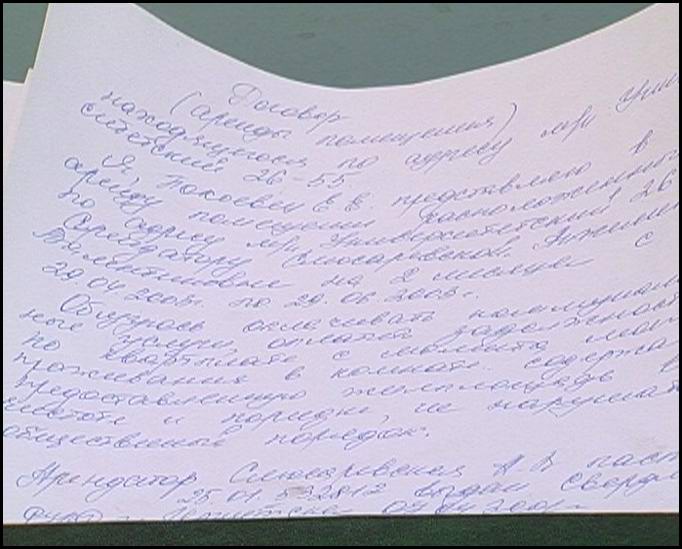 Договор
(аренды помещения)
находящегося по адресу м/н Уни
ский 26-55.
Я, представляю в
аренду помещения расположенный
по адресу м/н Университетский 26
Арендатору Слюсаревской
на 2 месяца с
20.04.2003г. по 20.06.2003г.
Обязуюсь оплачивать коммуналь
ные услуги, оплатить задолженность
по квартплате с момента мое
проживания в комнате. содержа
предоставленную жилплощадь в
чистоте и порядке, не нарушат
общественный порядок.
Арендатор Слюсаревская А.В. пасп
25 01 выдан Свердл